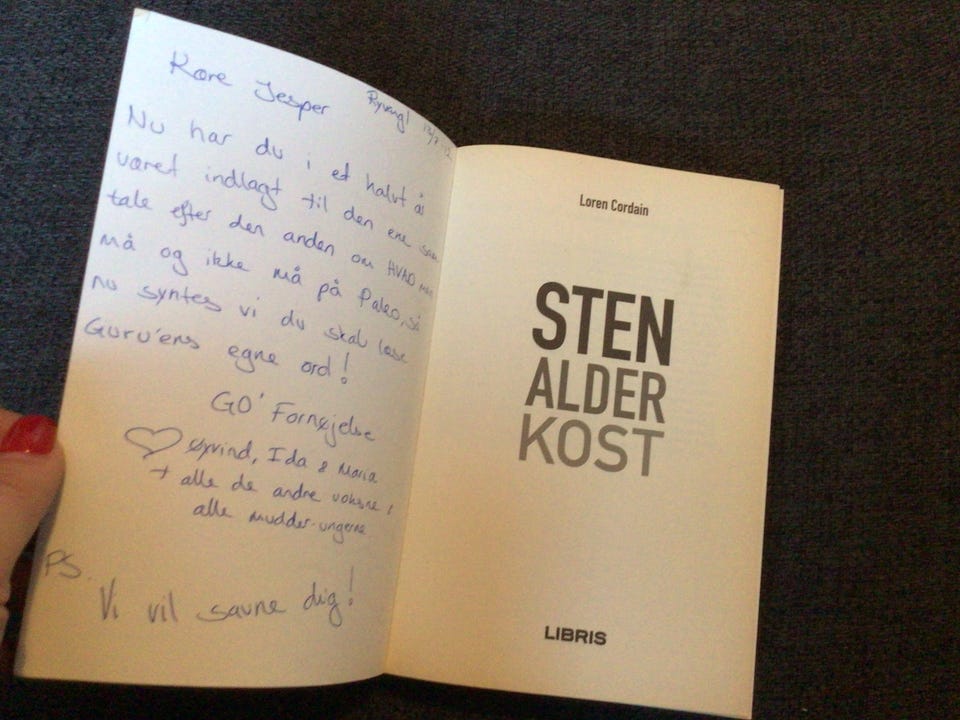 Kære Jesper
Ryvang 12/7-12
Nu har du i et halvt år
været indlagt til den ene sam
tale efter den anden om HVAD man
må og ikke må på Paleo, så
nu syntes vi du skal læse
Guru'ens egne ord!
GO' Fornøjelse
♡ Øyvind, Ida & Maria
+ alle de andre voksne i
alle mudder-ungerne
PS.
Vi vil savne dig!
Loren Cordain
STEN
ALDER
KOST
LIBRIS